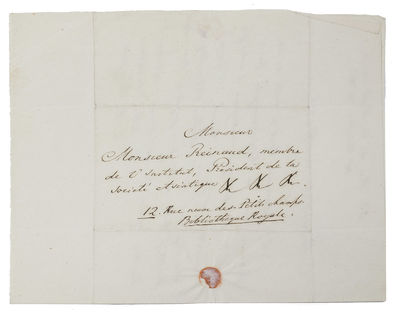 Monsieur
Monsieur Reinaud, membre
de l'Institut, Président de la
Société Asiatique & & &.
12. Rue neuve des Petits champs
Bibliothèque Royale.